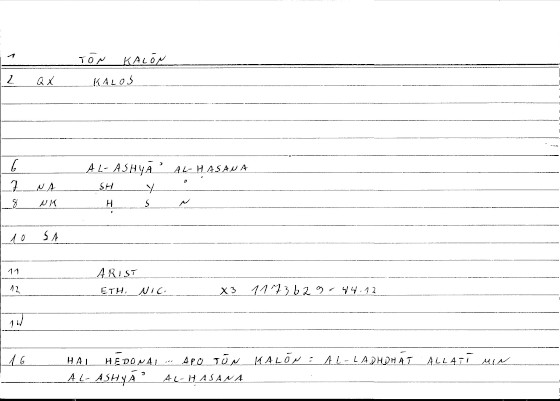 1 TŌN KALŌN
2 QX KALOS
6 AL-ASHYĀʾ AL-ḤASANA
7 NA SH Y ʾ
8 NK Ḥ S N
10 SA
11 ARIST
12 ETH. NIC. X3 1173b29-44.12
14
16 HAI HĒDONAI ... APO TŌN KALŌN : AL-LADHDHĀT ALLATĪ MIN
AL-ASHYĀʾ AL-ḤASANA